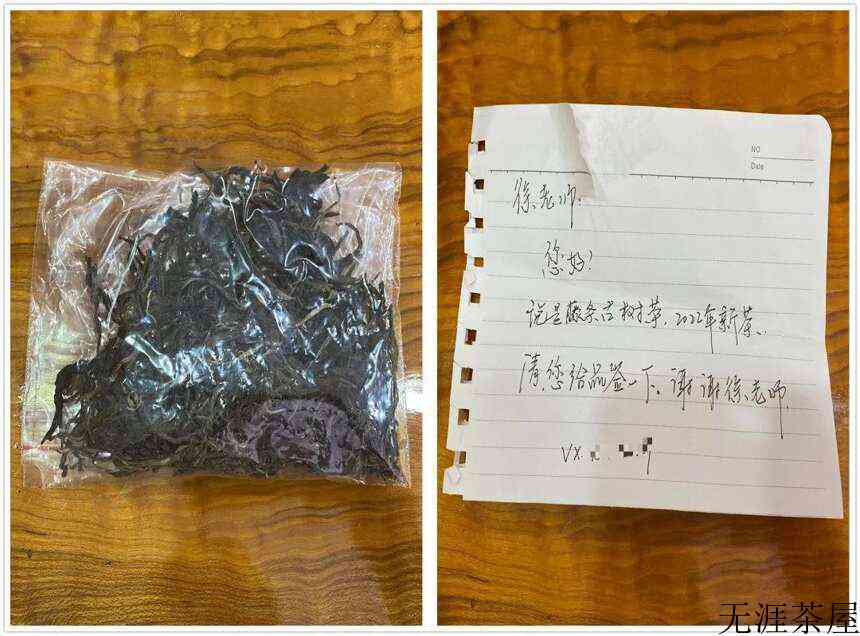 NO
Date
徐老师.
您好!
说是藤条古树茶,2022年新茶.
请您给品鉴一下,谢谢徐老师.
VX.
无涯茶屋